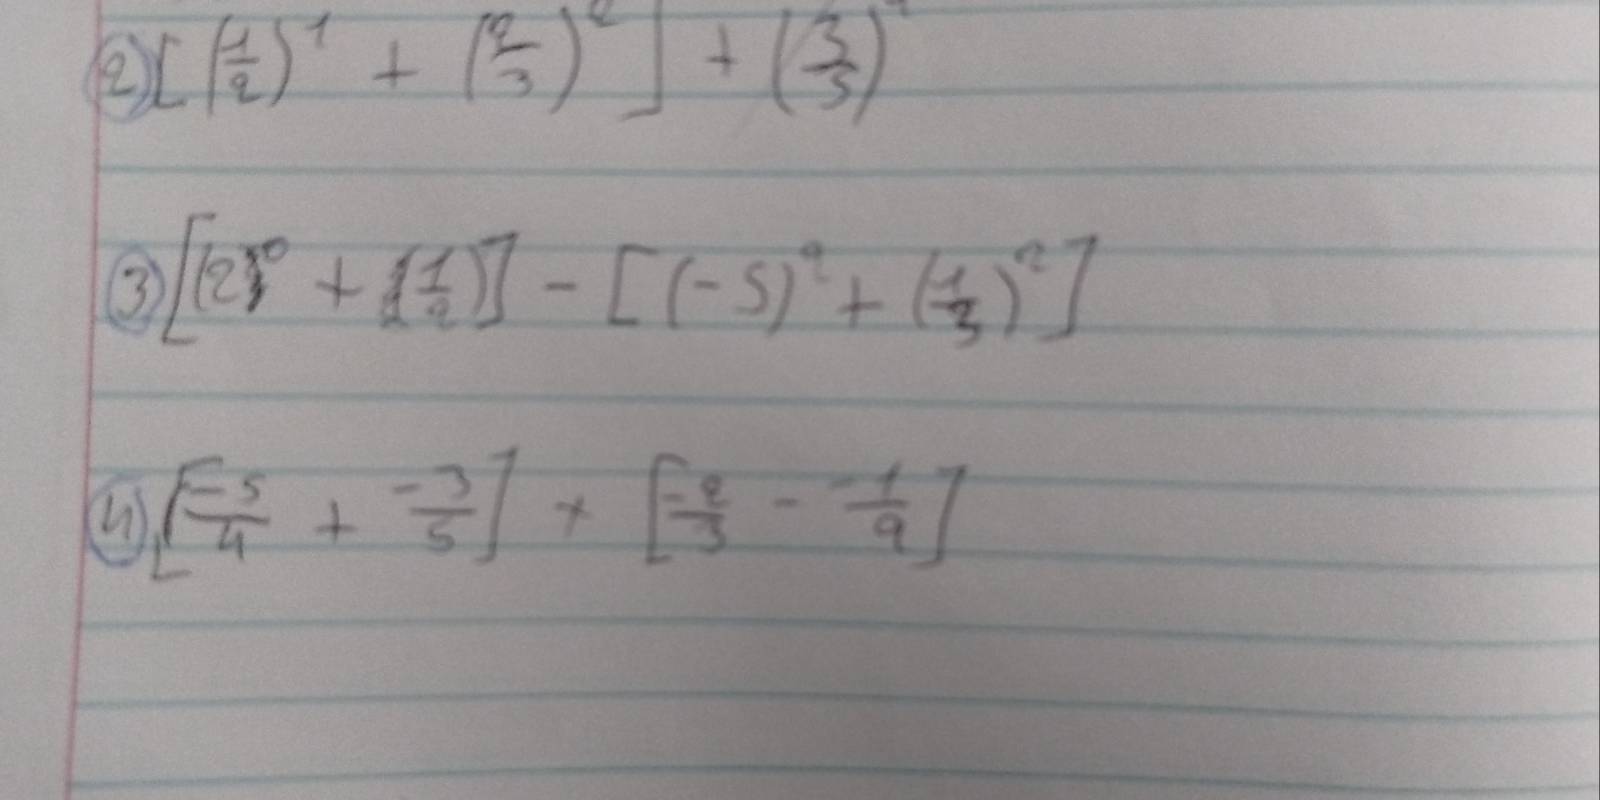 2) [(1/2)^1 + (2/3)^2] + (3/3)
3) [(2)^0 + (1/2)] - [(-5)^2 + (1/3)^2]
4) [-5/4 + -3/5] + [-2/3 - -1/9]